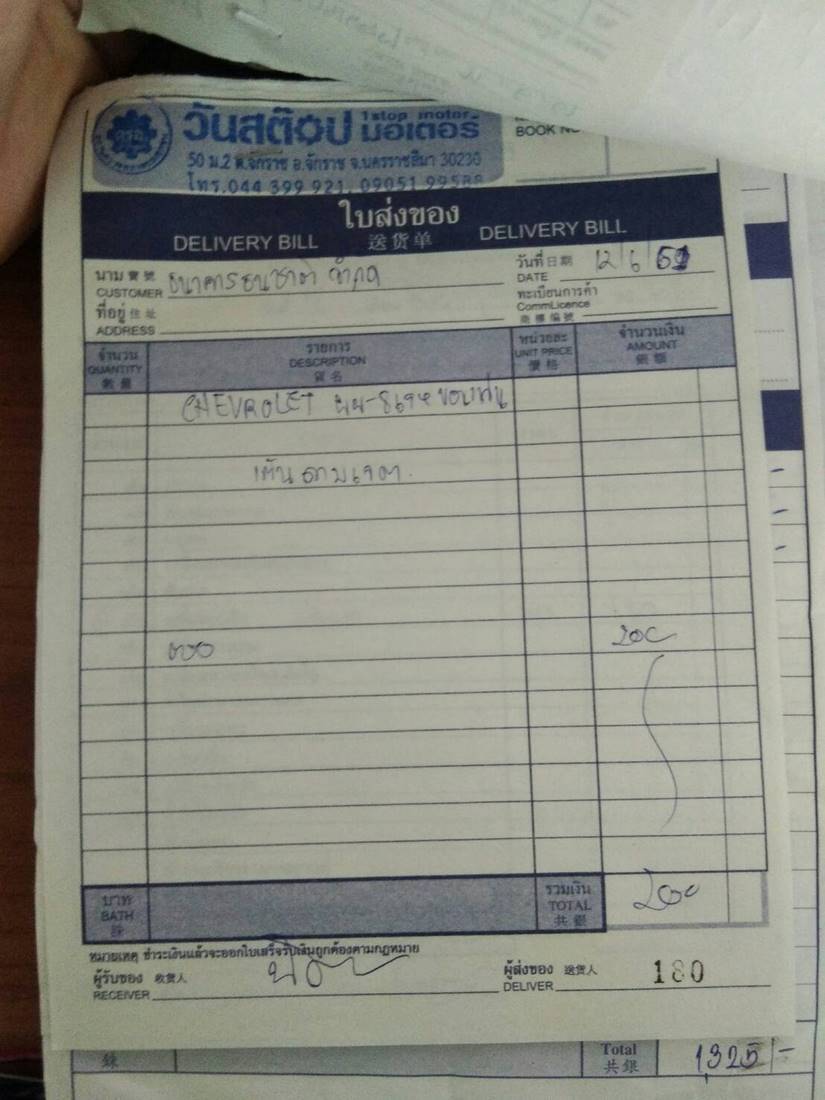 วันสต๊อป 1stop motor
มอเตอร์
BOOK NO
50 ม.2 ต.จักราช อ.จักราช จ.นครราชสีมา 30230
โทร.044 399 921, 09051 99588
ใบส่งของ
DELIVERY BILL 送货单 DELIVERY BILL
นาม 寶號 ธนาคารธนชาต จำกัด
CUSTOMER
วันที่ 日期 12/6/
DATE
ที่อยู่ 住址
ADDRESS
ทะเบียนการค้า
CommLicence
商標編號
จำนวน รายการ หน่วยละ จำนวนเงิน
QUANTITY DESCRIPTION UNIT PRICE AMOUNT
數量 貨名 價格 銀額
CHEVROLET ผผ-8694 ขอนแก่น
200
บาท รวมเงิน 200
BATH TOTAL
銖 共銀
หมายเหตุ ชำระเงินแล้วจะออกใบเสร็จรับเงินถูกต้องตามกฎหมาย
ผู้รับของ 收貨人 ผู้ส่งของ 送貨人 180
RECEIVER DELIVER
銖 Total 1,325 -
共銀